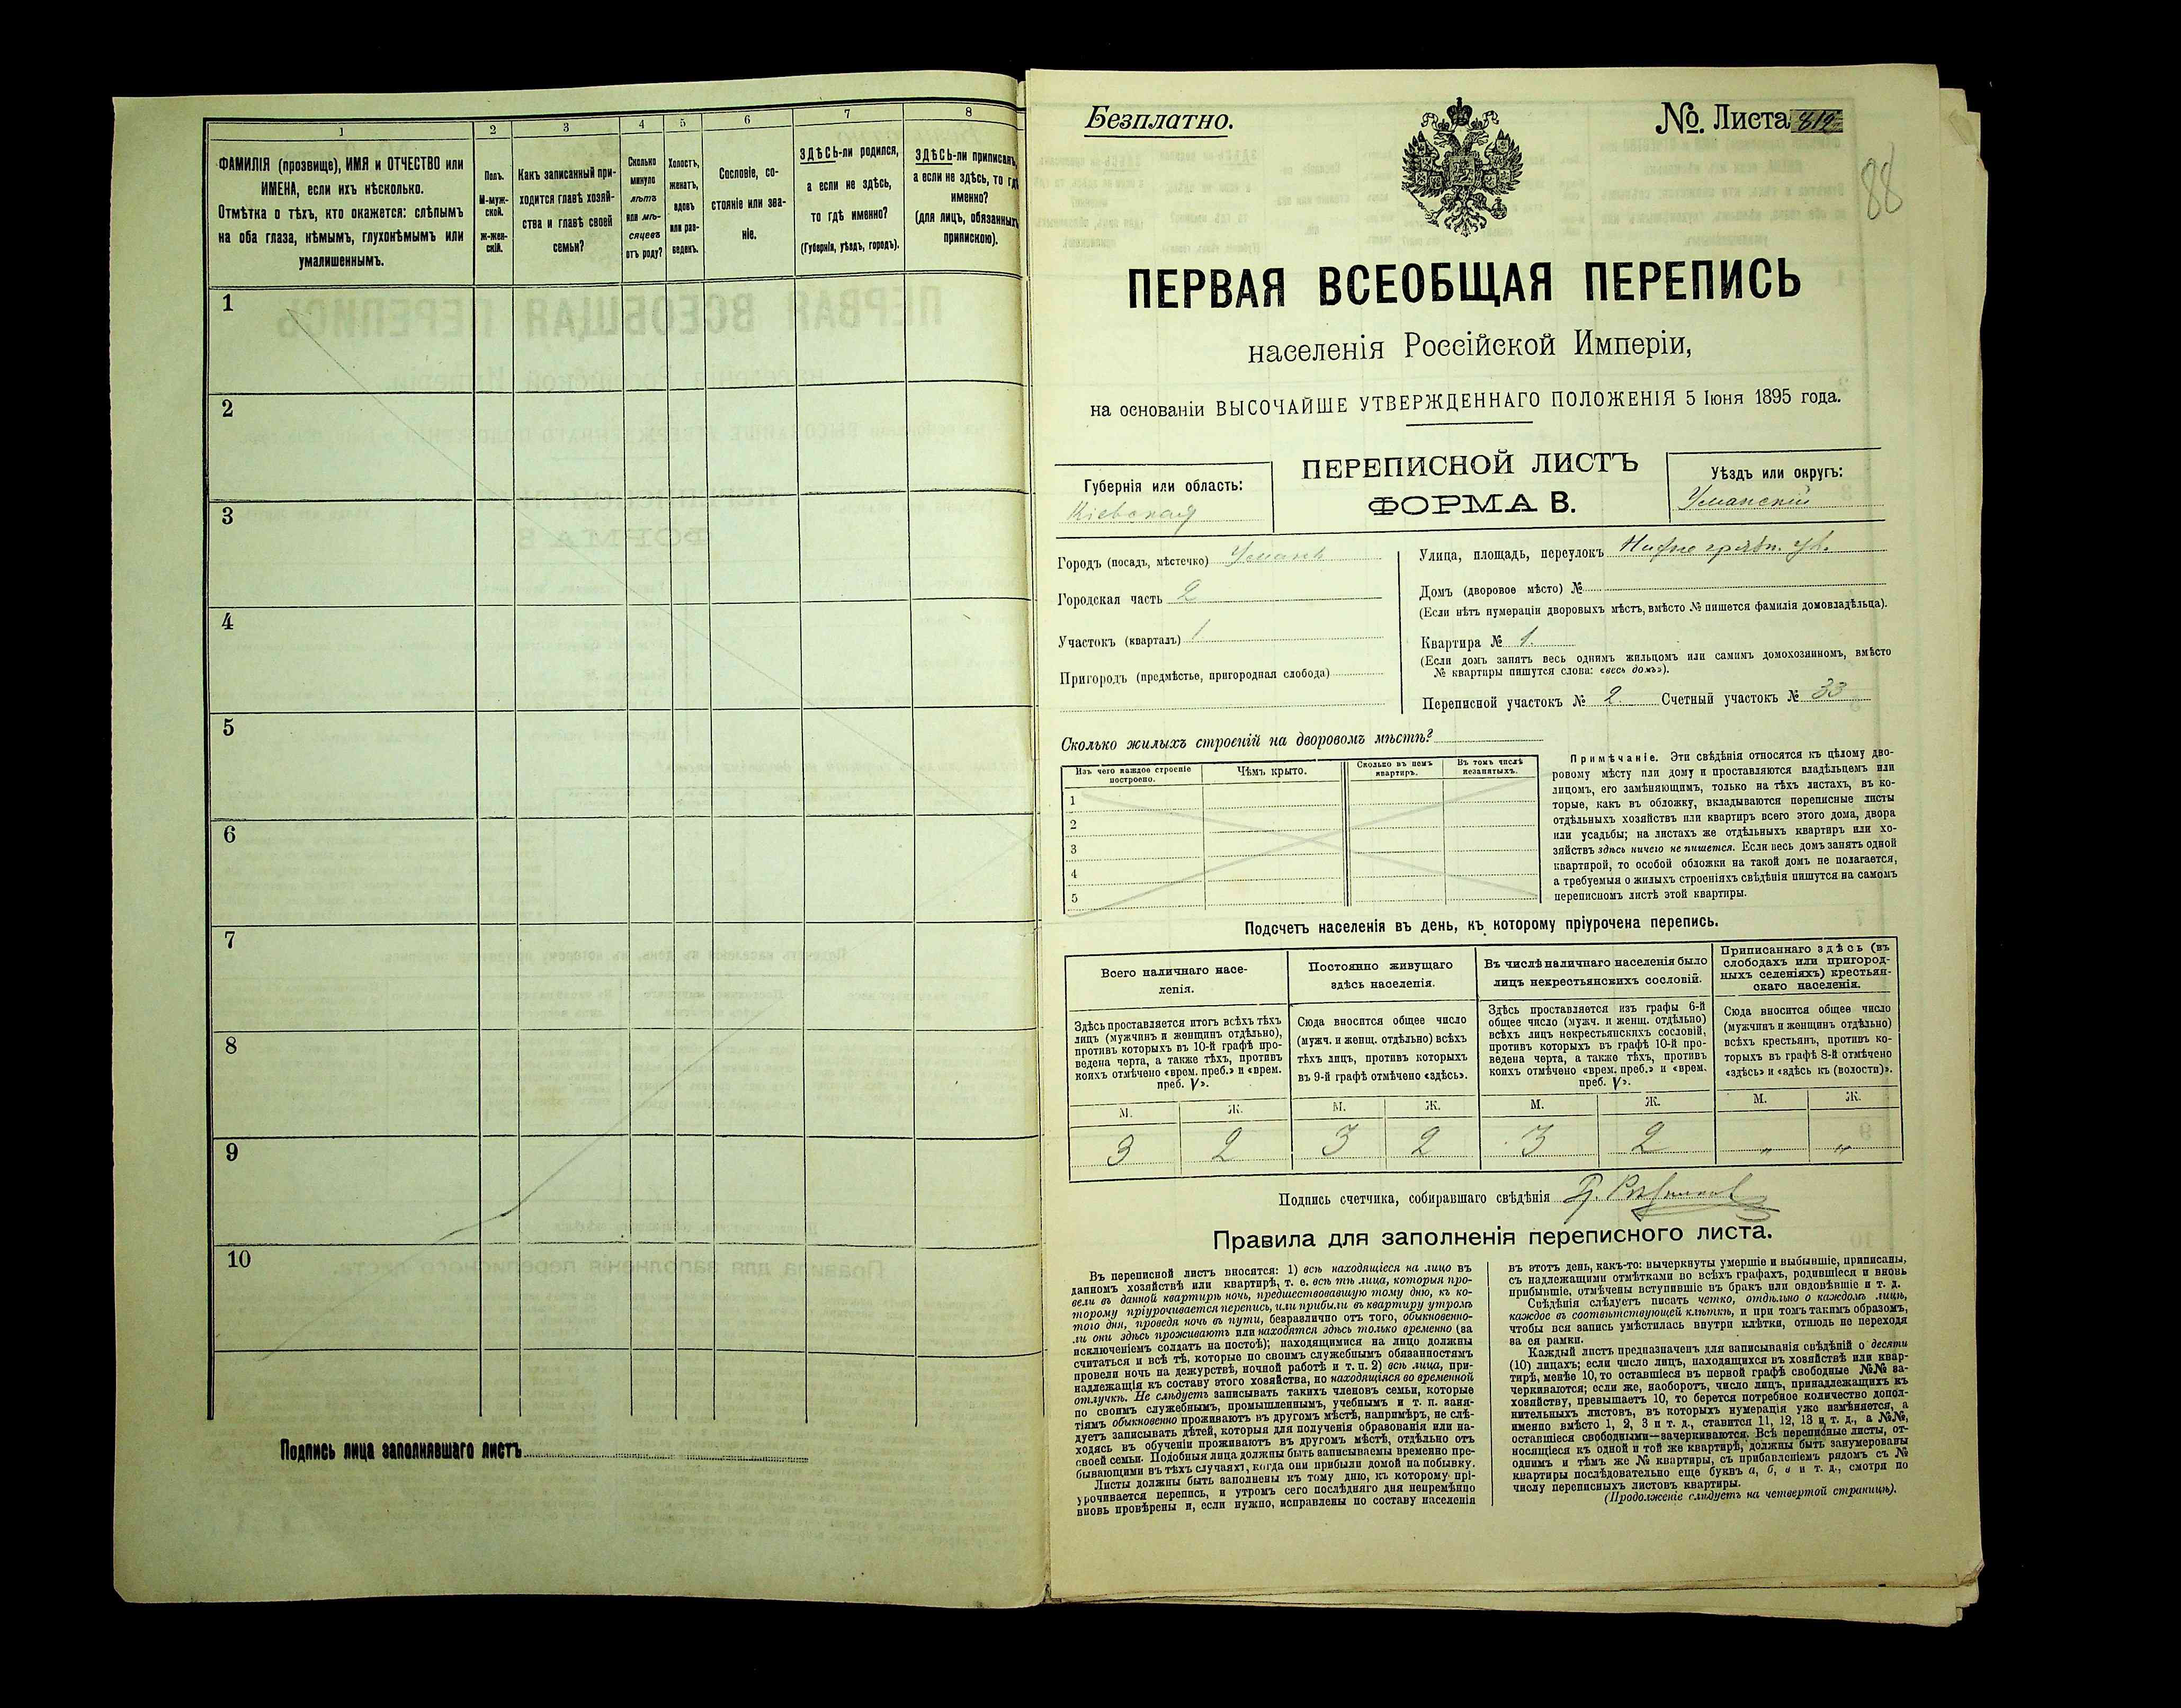 1
2
3
4
5
6
7
8
ФАМИЛІЯ (прозвище), ИМЯ и ОТЧЕСТВО или
ИМЕНА, если ихъ нѣсколько.
Отмѣтка о тѣхъ, кто окажется: слѣпымъ
на оба глаза, нѣмымъ, глухонѣмымъ или
умалишеннымъ.
Полъ.
М-муж-
ской.
ж-жен-
скій.
Какъ записанный при-
ходится главѣ хозяй-
ства и главѣ своей
семьи?
Сколько
минуло
лѣтъ
или мѣ-
сяцевъ
отъ роду?
Холостъ,
женатъ,
вдовъ
или раз-
веденъ.
Сословіе, со-
стояніе или зва-
ніе.
ЗДѢСЬ-ли родился,
а если не здѣсь,
то гдѣ именно?
(Губернія, уѣздъ, городъ).
ЗДѢСЬ-ли приписанъ,
а если не здѣсь, то гдѣ
именно?
(для лицъ, обязанныхъ
припискою).
1
2
3
4
5
6
7
8
9
10
Подпись лица заполнявшаго листъ
Безплатно.
№. Листа 819
88
ПЕРВАЯ ВСЕОБЩАЯ ПЕРЕПИСЬ
населенія Россійской Имперіи,
на основаніи ВЫСОЧАЙШЕ УТВЕРЖДЕННАГО ПОЛОЖЕНІЯ 5 Іюня 1895 года.
ПЕРЕПИСНОЙ ЛИСТЪ
ФОРМА В.
Губернія или область:
Кіевская
Уѣздъ или округъ:
Уманскій
Городъ (посадъ, мѣстечко) Умань
Городская часть 2
Участокъ (кварталъ) 1
Пригородъ (предмѣстье, пригородная слобода)
Улица, площадь, переулокъ
Домъ (дворовое мѣсто) №
(Если нѣтъ нумераціи дворовыхъ мѣстъ, вмѣсто № пишется фамилія домовладѣльца).
Квартира № 1.
(Если домъ занятъ весь однимъ жильцомъ или самимъ домохозяиномъ, вмѣсто
№ квартиры пишутся слова: «весь домъ»).
Переписной участокъ № 2. Счетный участокъ № 33
Сколько жилыхъ строеній на дворовомъ мѣстѣ?
Изъ чего каждое строеніе
построено.
Чѣмъ крыто.
Сколько въ немъ
квартиръ.
Въ томъ числѣ
незанятыхъ.
1
2
3
4
5
Примѣчаніе. Эти свѣдѣнія относятся къ цѣлому дво-
ровому мѣсту или дому и проставляются владѣльцемъ или
лицомъ, его замѣняющимъ, только на тѣхъ листахъ, въ ко-
торые, какъ въ обложку, вкладываются переписные листы
отдѣльныхъ хозяйствъ или квартиръ всего этого дома, двора
или усадьбы; на листахъ же отдѣльныхъ квартиръ или хо-
зяйствъ здѣсь ничего не пишется. Если весь домъ занятъ одной
квартирой, то особой обложки на такой домъ не полагается,
а требуемыя о жилыхъ строеніяхъ свѣдѣнія пишутся на самомъ
переписномъ листѣ этой квартиры.
Подсчетъ населенія въ день, къ которому пріурочена перепись.
Всего наличнаго насе-
ленія.
Здѣсь проставляется итогъ всѣхъ тѣхъ
лицъ (мужчинъ и женщинъ отдѣльно),
противъ которыхъ въ 10-й графѣ про-
ведена черта, а также тѣхъ, противъ
коихъ отмѣчено «врем. преб.» и «врем.
преб. V».
Постоянно живущаго
здѣсь населенія.
Сюда вносится общее число
(мужч. и женщ. отдѣльно) всѣхъ
тѣхъ лицъ, противъ которыхъ
въ 9-й графѣ отмѣчено «здѣсь».
Въ числѣ наличнаго населенія было
лицъ некрестьянскихъ сословій.
Здѣсь проставляется изъ графы 6-й
общее число (мужч. и женщ. отдѣльно)
всѣхъ лицъ некрестьянскихъ сословій,
противъ которыхъ въ графѣ 10-й про-
ведена черта, а также тѣхъ, противъ
коихъ отмѣчено «врем. преб.» и «врем.
преб. V».
Приписаннаго здѣсь (въ
слободахъ или пригород-
ныхъ селеніяхъ) крестьян-
скаго населенія.
Сюда вносится общее число
(мужчинъ и женщинъ отдѣльно)
всѣхъ крестьянъ, противъ ко-
торыхъ въ графѣ 8-й отмѣчено
«здѣсь» и «здѣсь къ (волости)».
М. Ж. М. Ж. М. Ж. М. Ж.
3 2 3 2 3 2 „ „
Подпись счетчика, собиравшаго свѣдѣнія
Правила для заполненія переписного листа.
Въ переписной листъ вносятся: 1) всѣ находящіеся на лицо въ
данномъ хозяйствѣ или квартирѣ, т. е. всѣ тѣ лица, которыя про-
вели въ данной квартирѣ ночь, предшествовавшую тому дню, къ ко-
торому пріурочивается перепись, или прибыли въ квартиру утромъ
того дня, проведя ночь въ пути, безразлично отъ того, обыкновенно-
ли они здѣсь проживаютъ или находятся здѣсь только временно (за
исключеніемъ солдатъ на постоѣ); находящимися на лицо должны
считаться и всѣ тѣ, которые по своимъ служебнымъ обязанностямъ
провели ночь на дежурствѣ, ночной работѣ и т. п. 2) всѣ лица, при-
надлежащія къ составу этого хозяйства, но находящіяся во временной
отлучкѣ. Не слѣдуетъ записывать такихъ членовъ семьи, которые
по своимъ служебнымъ, промышленнымъ, учебнымъ и т. п. заня-
тіямъ обыкновенно проживаютъ въ другомъ мѣстѣ, напримѣръ, не слѣ-
дуетъ записывать дѣтей, которыя для полученія образованія или на-
ходясь въ обученіи проживаютъ въ другомъ мѣстѣ, отдѣльно отъ
своей семьи. Подобныя лица должны быть записываемы временно пре-
бывающими въ тѣхъ случаяхъ, когда они прибыли домой на побывку.
Листы должны быть заполнены къ тому дню, къ которому прі-
урочивается перепись, и утромъ сего послѣдняго дня непремѣнно
вновь провѣрены и, если нужно, исправлены по составу населенія
въ этотъ день, какъ-то: вычеркнуты умершіе и выбывшіе, приписаны,
съ надлежащими отмѣтками во всѣхъ графахъ, родившіеся и вновь
прибывшіе, отмѣчены вступившіе въ бракъ или овдовѣвшіе и т. д.
Свѣдѣнія слѣдуетъ писать четко, отдѣльно о каждомъ лицѣ,
каждое въ соотвѣтствующей клѣткѣ, и при томъ такимъ образомъ,
чтобы вся запись умѣстилась внутри клѣтки, отнюдь не переходя
за ея рамки.
Каждый листъ предназначенъ для записыванія свѣдѣній о десяти
(10) лицахъ; если число лицъ, находящихся въ хозяйствѣ или квар-
тирѣ, менѣе 10, то оставшіеся въ первой графѣ свободные №№ за-
черкиваются; если же, наоборотъ, число лицъ, принадлежащихъ къ
хозяйству, превышаетъ 10, то берется потребное количество допол-
нительныхъ листовъ, въ которыхъ нумерація уже измѣняется, а
именно вмѣсто 1, 2, 3 и т. д., ставится 11, 12, 13 и т. д., а №№,
оставшіеся свободными—зачеркиваются. Всѣ переписные листы, от-
носящіеся къ одной и той же квартирѣ, должны быть занумерованы
однимъ и тѣмъ же № квартиры, съ прибавленіемъ рядомъ съ №
квартиры послѣдовательно еще буквъ а, б, в и т. д., смотря по
числу переписныхъ листовъ квартиры.
(Продолженіе слѣдуетъ на четвертой страницѣ).